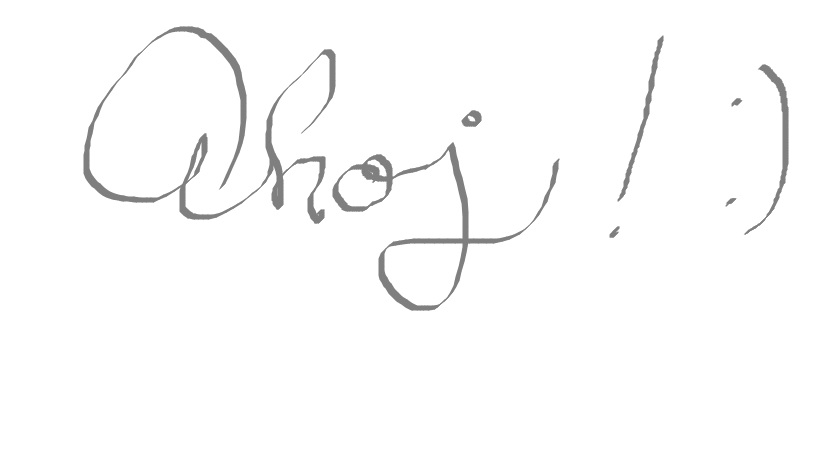 Ahoj! :)